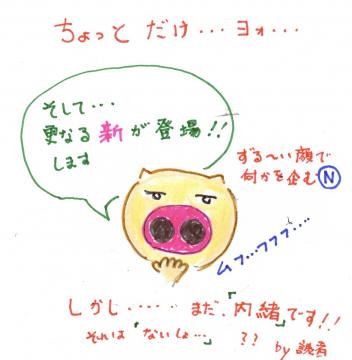 ちょっと だけ・・・ヨォ・・・
そして・・・
更なる 新が 登場!!
します
ずる~い顔で
何かを企む Ⓝ
ムフ・・・フフフ・・・・
しかし・・・・・・ まだ「内緒」です!!
それは「ないしょ・・・」?? by 読者